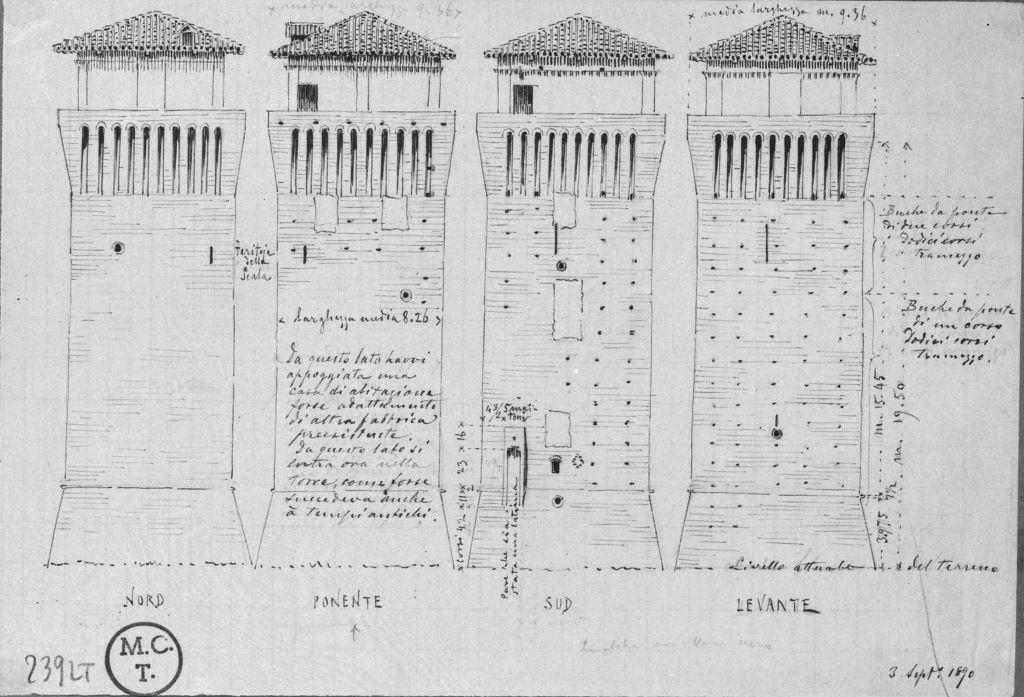 media larghezza 9.36
media larghezza m. 9.36
Feritoje
della
Scala
larghezza media 8.26
Da questo lato havvi
appoggiata una
casa di abitazione
forse adattamento
di altra fabbrica
preesistente.
Da questo lato si
entra ora nella
torre, come forse
succedeva anche
à tempi antichi.
4 3/5 mat-
1/2 toni
corsi 42 x 11 x 23 x 16 x
Pare che sia
stata una latrina
Buche da ponte
di due corsi
dodici corsi
tramezzo
Buche da ponte
di un corso
Dodici corsi
tramezzo.
m. 15.45
m. 19.50
3.975
7 1/2
Livello attuale del terreno
NORD
PONENTE
SUD
LEVANTE
M.C.
T.
2392T
3. Sept.e 1890